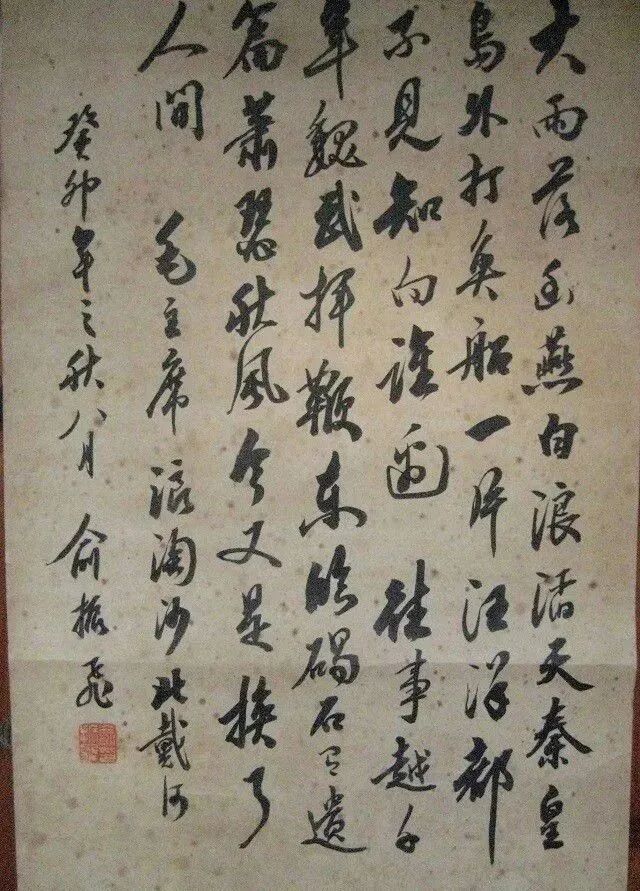 大雨落幽燕白浪滔天秦皇
島外打魚船一片汪洋都
不見知向誰邊 往事越千
年魏武揮鞭東臨碣石有遺
篇蕭瑟秋風今又是換了
人間 毛主席浪淘沙北戴河
癸卯年之秋八月 俞振飛